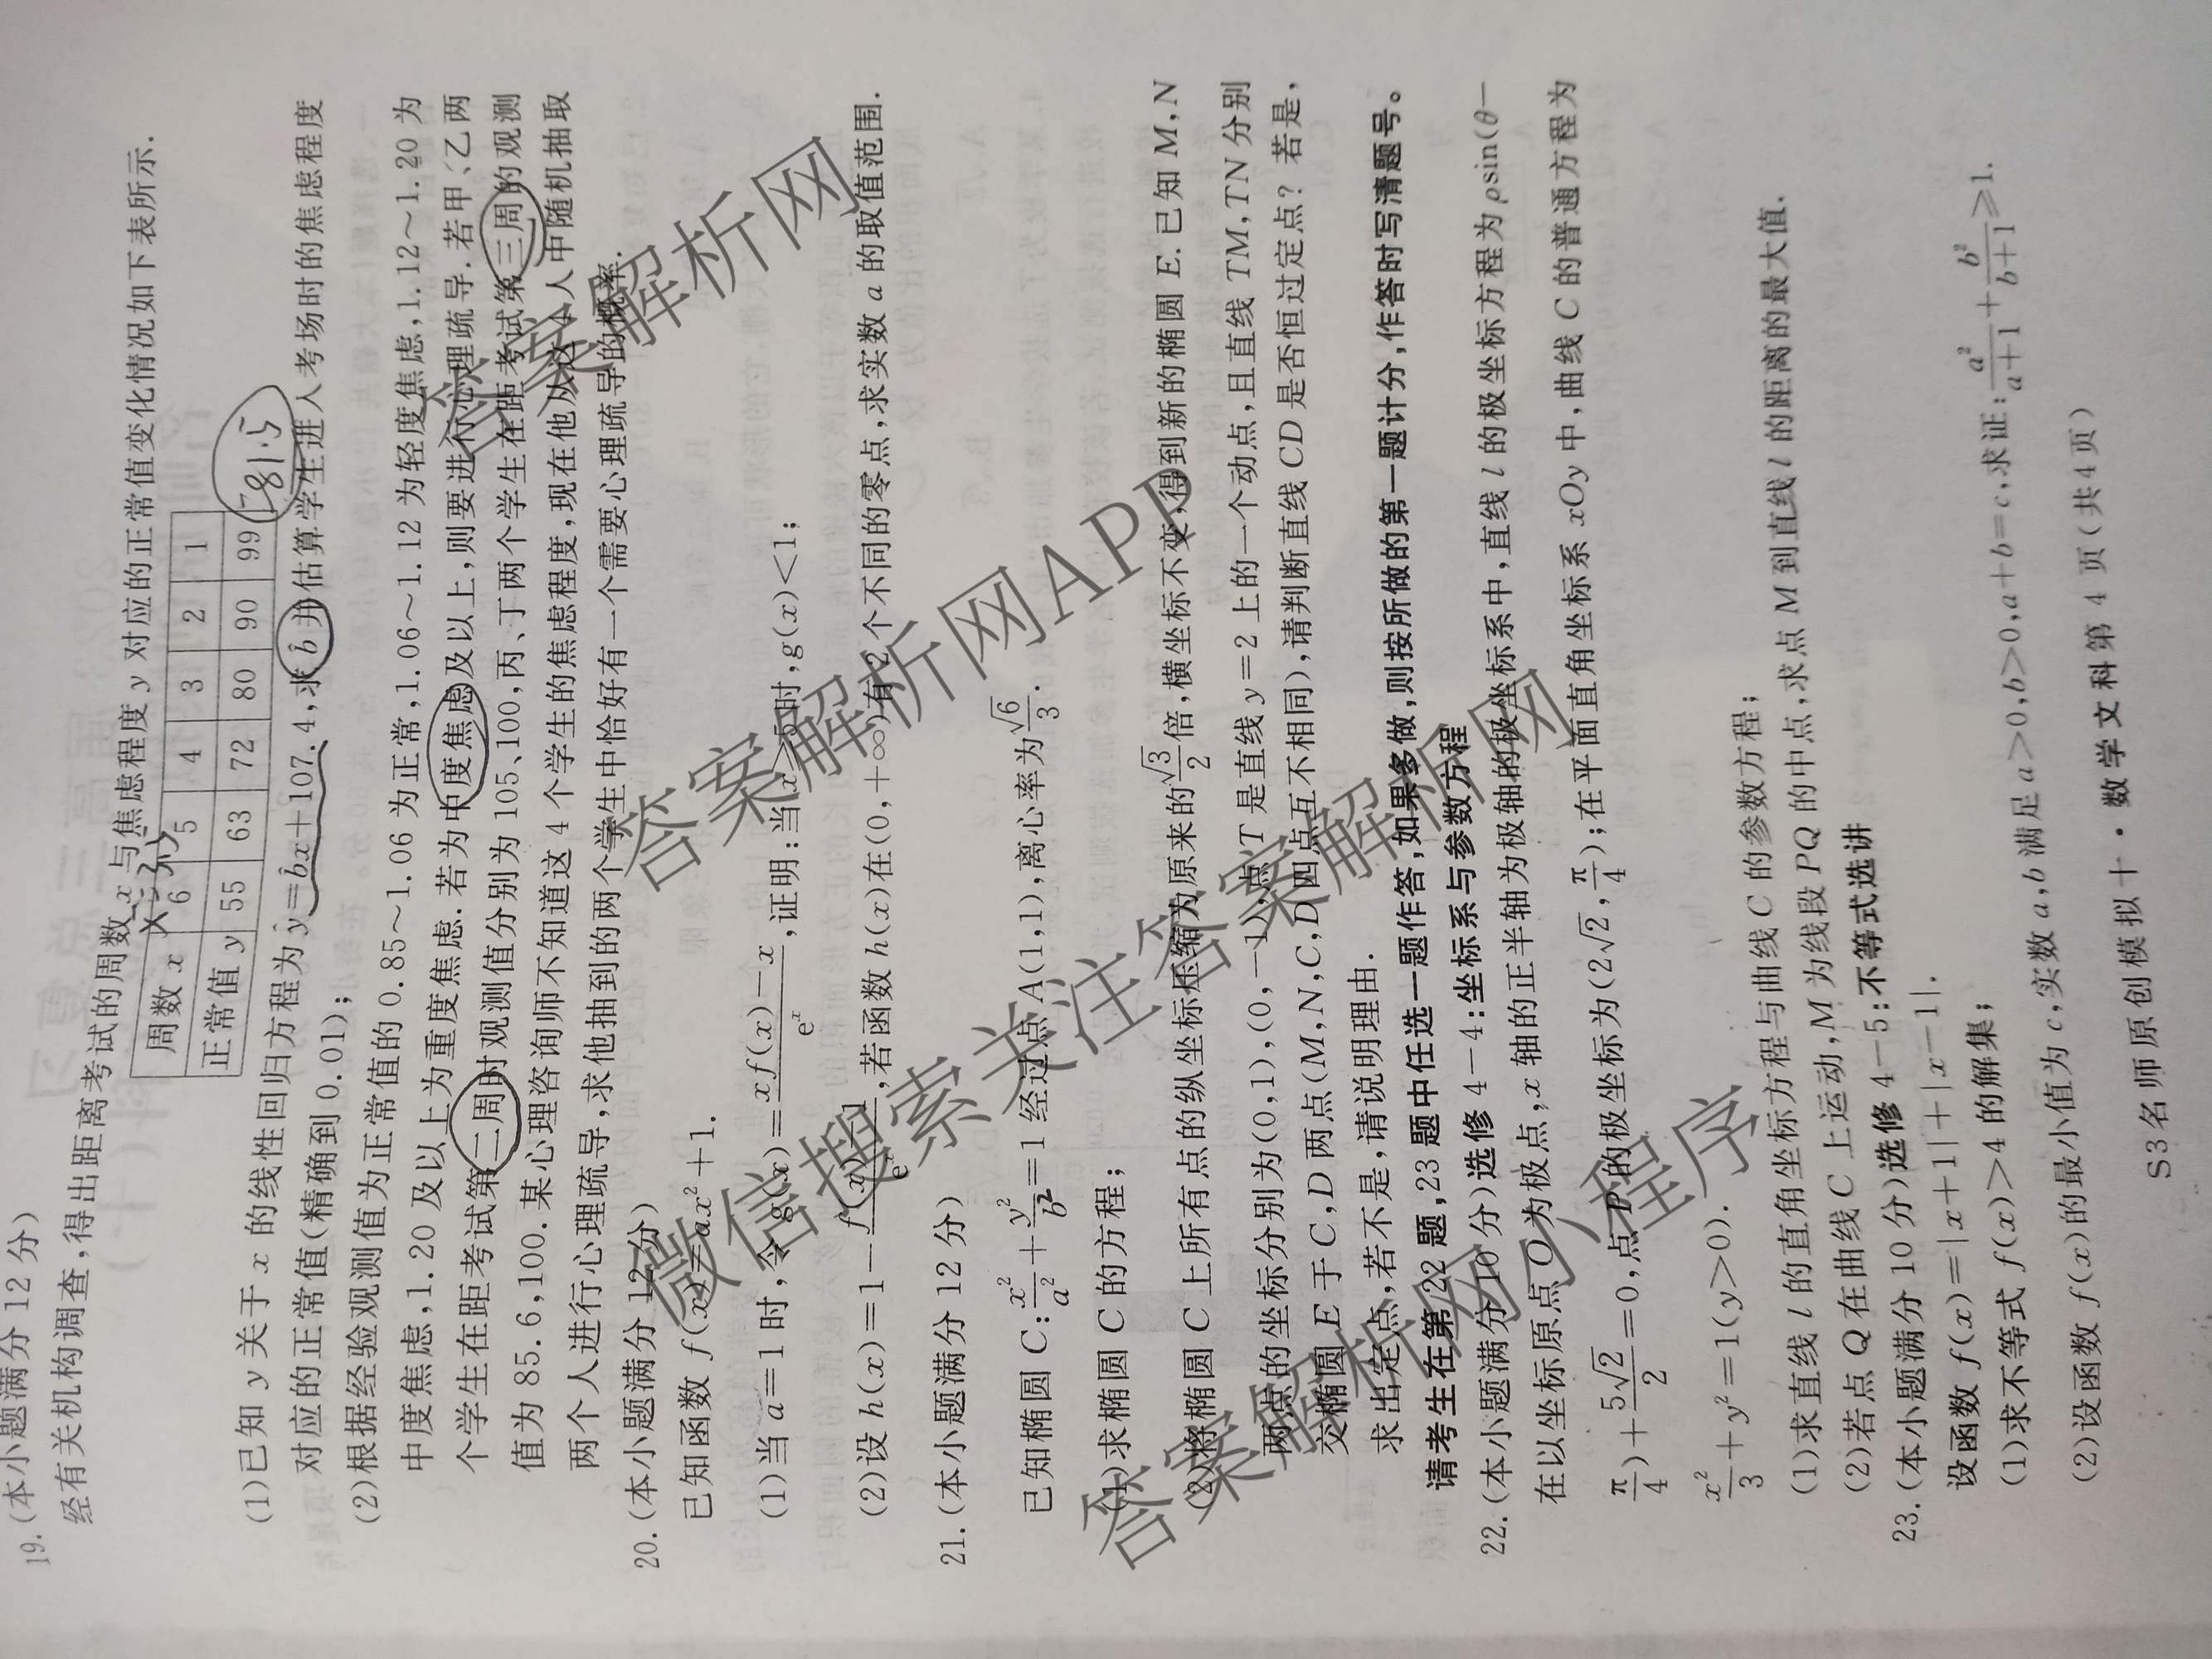 19.(本小题满分 12 分)
经有关机构调查,得出距离考试的周数 x 与焦虑程度 y 对应的正常值变化情况如下表所示.
周数 x 6 5 4 3 2 1
正常值 y 55 63 72 80 90 99
-81.5
(1)已知 y 关于 x 的线性回归方程为 ŷ=b̂x+107.4,求 b̂ 并估算学生进入考场时的焦虑程度
对应的正常值(精确到 0.01);
(2)根据经验观测值为正常值的 0.85～1.06 为正常,1.06～1.12 为轻度焦虑,1.12～1.20 为
中度焦虑,1.20 及以上为重度焦虑.若为中度焦虑及以上,则要进行心理疏导.若甲、乙两
个学生在距考试第二周时观测值分别为 105、100,丙、丁两个学生在距考试第三周的观测
值为 85.6,100.某心理咨询师不知道这 4 个学生的焦虑程度,现在他从这 4 人中随机抽取
两个人进行心理疏导,求他抽到的两个学生中恰好有一个需要心理疏导的概率.
20.(本小题满分 12 分)
已知函数 f(x)=ax²+1.
(1)当 a=1 时,令 g(x)=\frac{xf(x)-x}{eˣ},证明:当 x>0时,g(x)<1;
(2)设 h(x)=1-\frac{f(x)-1}{eˣ},若函数 h(x)在(0,+∞)有 2 个不同的零点,求实数 a 的取值范围.
21.(本小题满分 12 分)
已知椭圆 C:\frac{x²}{a²}+\frac{y²}{b²}=1 经过点 A(1,1),离心率为\frac{√6}{3}.
(1)求椭圆 C 的方程;
(2)将椭圆 C 上所有点的纵坐标压缩为原来的\frac{√3}{2}倍,横坐标不变,得到新的椭圆 E.已知 M,N
两点的坐标分别为(0,1),(0,-1),点 T 是直线 y=2 上的一个动点,且直线 TM,TN 分别
交椭圆 E 于 C,D 两点(M,N,C,D 四点互不相同),请判断直线 CD 是否恒过定点? 若是,
求出定点,若不是,请说明理由.
请考生在第 22 题,23 题中任选一题作答,如果多做,则按所做的第一题计分,作答时写清题号。
22.(本小题满分 10 分)选修 4-4:坐标系与参数方程
在以坐标原点 O 为极点,x 轴的正半轴为极轴的极坐标系中,直线 l 的极坐标方程为 ρsin(θ-
\frac{π}{4})+\frac{5√2}{2}=0,点 P 的极坐标为(2√2,\frac{π}{4});在平面直角坐标系 xOy 中,曲线 C 的普通方程为
\frac{x²}{3}+y²=1(y>0).
(1)求直线 l 的直角坐标方程与曲线 C 的参数方程;
(2)若点 Q 在曲线 C 上运动,M 为线段 PQ 的中点,求点 M 到直线 l 的距离的最大值.
23.(本小题满分 10 分)选修 4-5:不等式选讲
设函数 f(x)=|x+1|+|x-1|.
(1)求不等式 f(x)>4 的解集;
(2)设函数 f(x)的最小值为 c,实数 a,b 满足 a>0,b>0,a+b=c,求证:\frac{a²}{a+1}+\frac{b²}{b+1}≥1.
S3 名师原创模拟十·数学文科第 4 页(共 4 页)
答案解析网
答案解析网APP
微信搜索关注答案解析网
答案解析网小程序